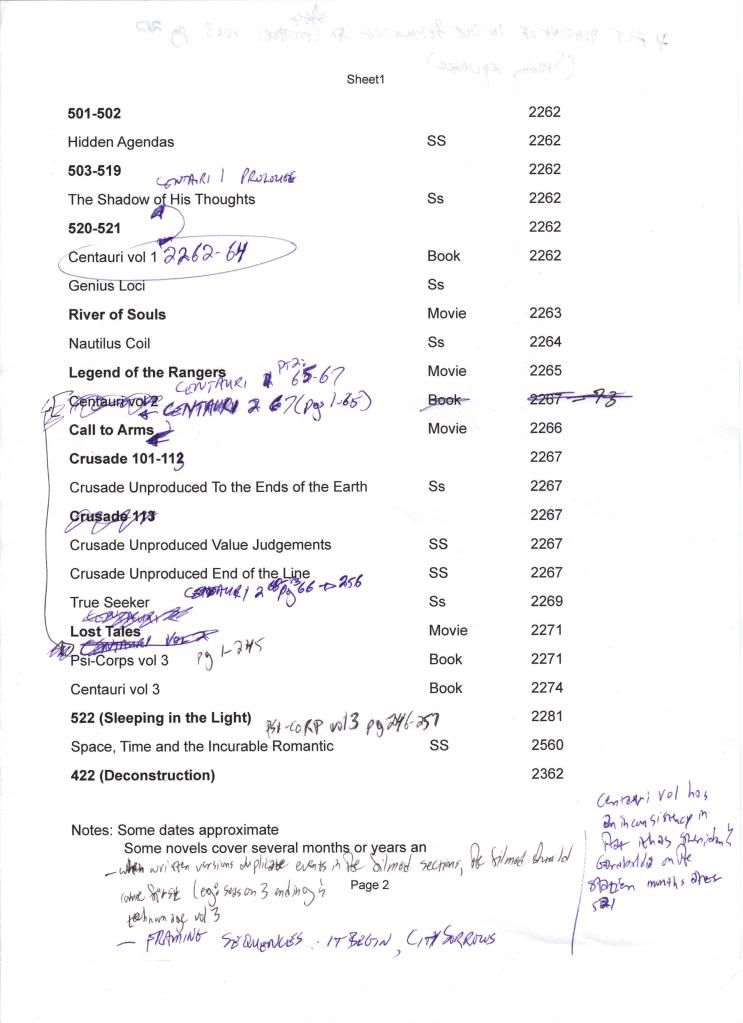 Sheet1
501-502 2262
Hidden Agendas SS 2262
503-519 2262
CENTAURI 1 PROLOUGE
The Shadow of His Thoughts Ss 2262
520-521 2262
Centauri vol 1 2262-64 Book 2262
Genius Loci Ss
River of Souls Movie 2263
Nautilus Coil Ss 2264
Legend of the Rangers Movie 2265
CENTAURI 1 PT2: 65-67
Centauri vol 2 Book 2267 - 73
CENTAURI 2 67 (pgs 1-65)
Call to Arms Movie 2266
Crusade 101-113 2267
Crusade Unproduced To the Ends of the Earth Ss 2267
Crusade 113 2267
Crusade Unproduced Value Judgements SS 2267
Crusade Unproduced End of the Line SS 2267
CENTAURI 2 pg 66 → 256
True Seeker Ss 2269
Lost Tales Movie 2271
CENTAURI VOL 2
Psi-Corps vol 3 pg 1-245 Book 2271
Centauri vol 3 Book 2274
522 (Sleeping in the Light) 2281
PSI-CORP vol 3 pg 246-257
Space, Time and the Incurable Romantic SS 2560
422 (Deconstruction) 2362
Notes: Some dates approximate
Some novels cover several months or years an
- when written versions duplicate events in the filmed sections, the filmed should
come first (eg: season 3 ending &
technomage vol 3
Page 2
- FRAMING SEQUENCES. IT BEGIN, CITY SORROWS
Centauri vol has
an inconsistency in
that it has Sheridan &
Garibaldi on the
station months after
521